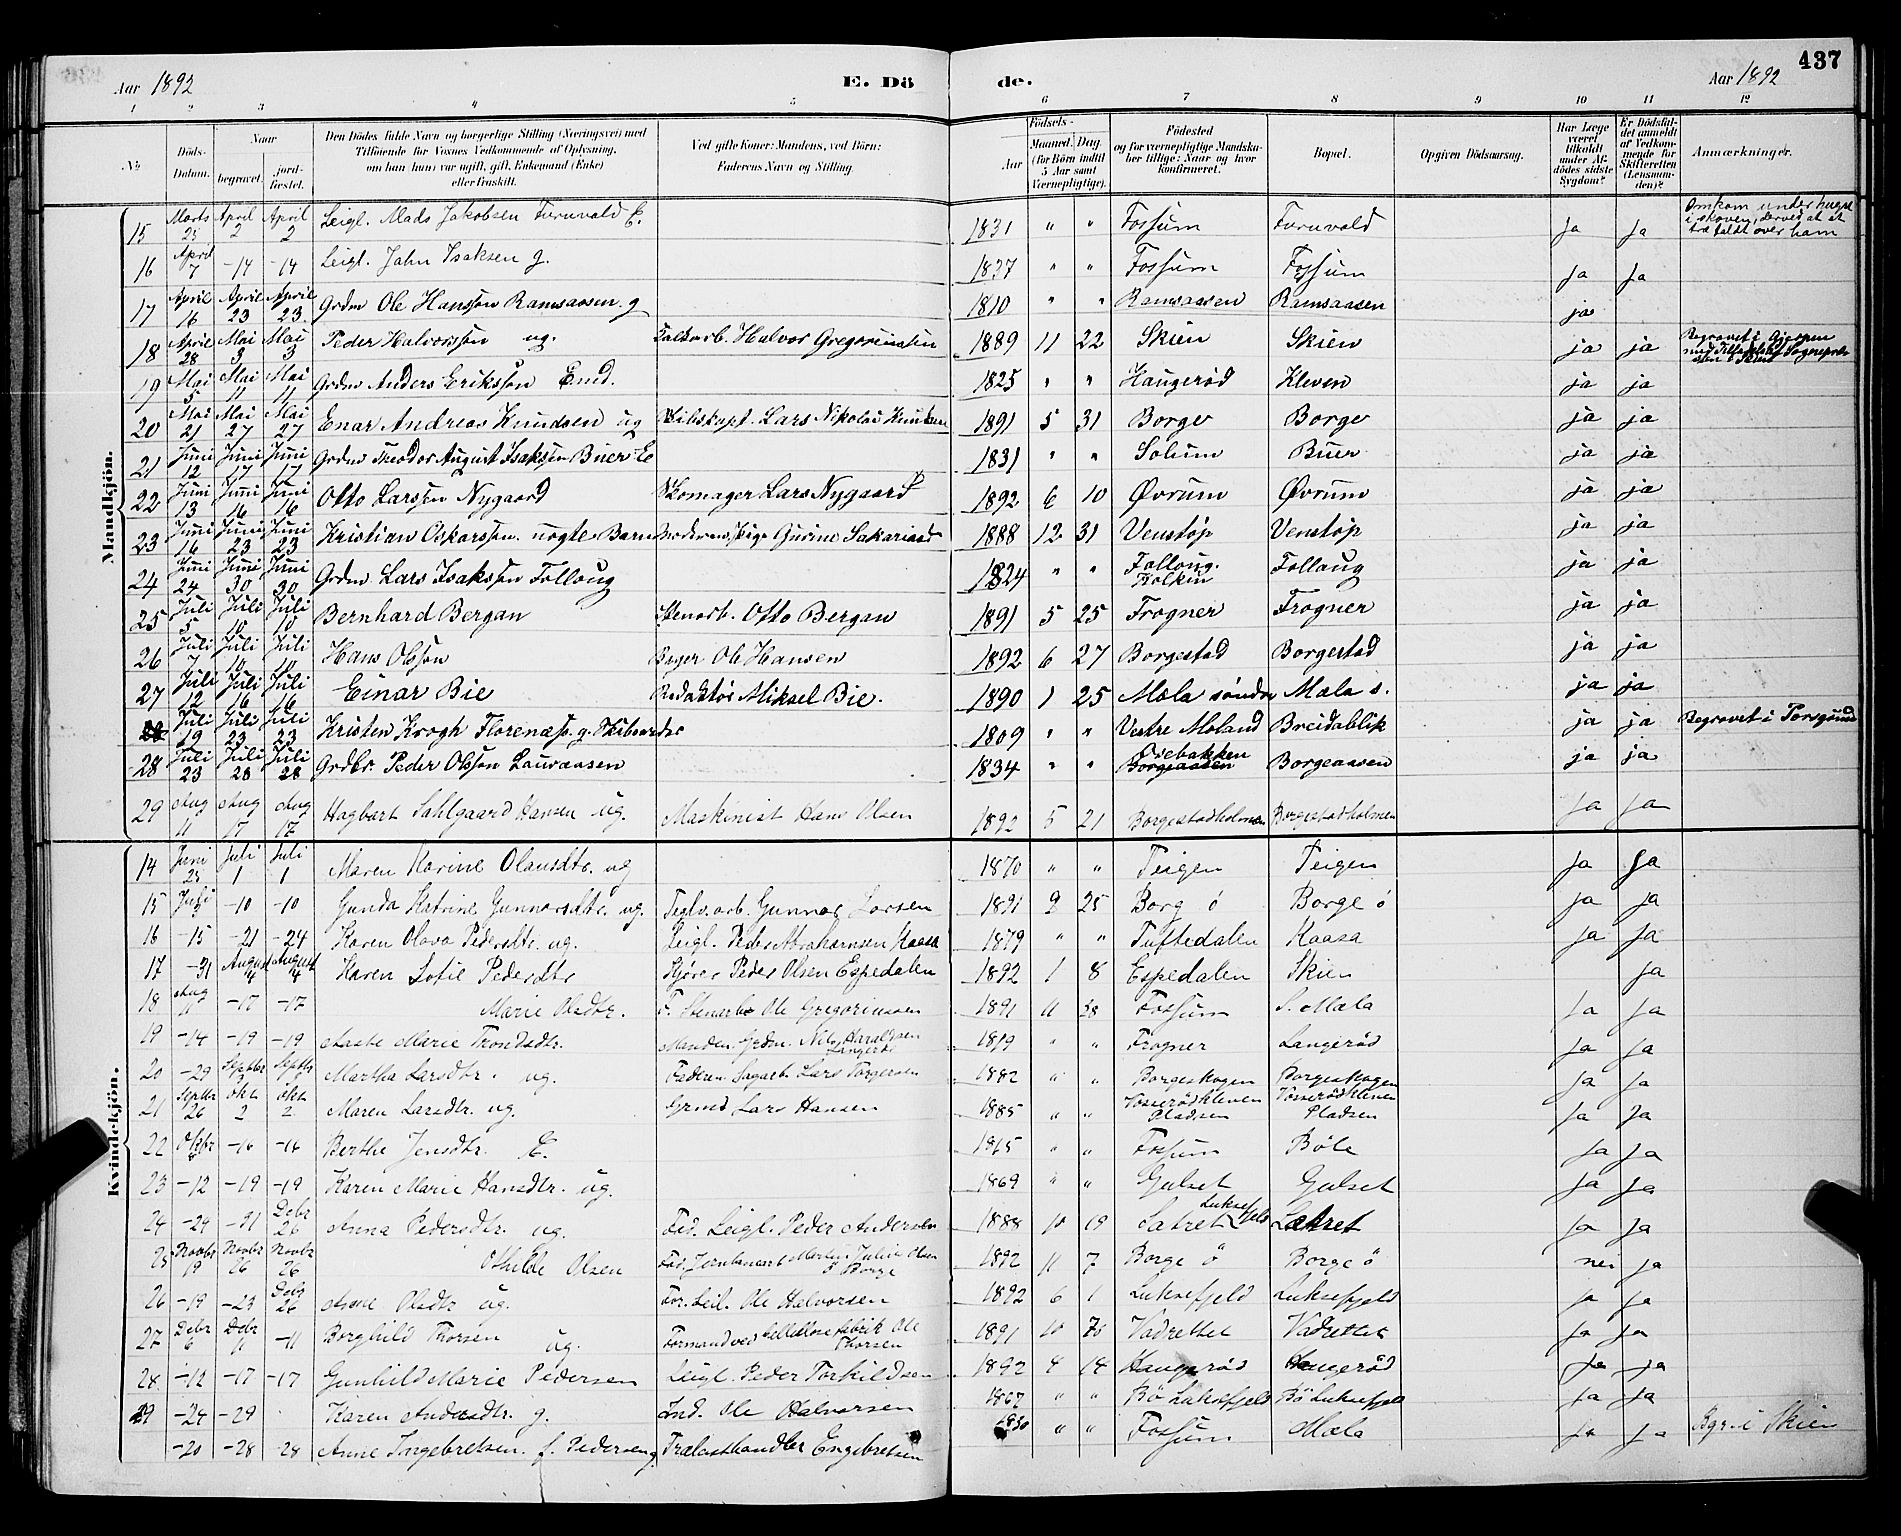 Aar 1892 E. Dö de. Aar 1892 437
1 2 3 4 5 6 7 8 9 10 11 12
No. Döds-Datum. Naar begravet. jordfæstet. Den Dödes fulde Navn og borgerlige Stilling (Næringsvei) med Tilföiende for Voxnes Vedkommende af Oplysning, om han (hun) var ugift, gift, Enkemand (Enke) eller fraskilt. Ved gifte Koner: Mandens, ved Börn: Faderens Navn og Stilling. Födsels- Aar Maaned. Dag. (for Börn indtil 5 Aar samt Værnepligtige). Födested og for værnepligtige Mandskaber tillige: Naar og hvor konfirmeret. Bopæl. Opgiven Dödsaarsag. Har Læge været tilkaldt under Afdödes sidste Sygdom? Er Dödsfaldet anmeldt af Vedkommende for Skifteretten (Lensmanden)? Anmærkninger.
Mandkjön.
15 Marts 25 April 2 April 2 Leigl. Mads Jakobsen Furuvald E. 1831 " " Fossum Furuvald ja ja Omkom under hugst i skoven, derved at et træ faldt over ham
16 April 7 -14 -14 Leigl. Jahn Isaksen g. 1837 " " Fossum Fossum ja ja
17 April 16 April 23 April 23 Grdm Ole Hansson Ramsaasen g 1810 " " Ramsaasen Ramsaasen ja
18 April 28 Mai 3 Mai 3 Peder Halvorssen ug. Halvor Gregoriussen 1889 11 22 Skien Skien ja ja Begravet i Gjerpen
19 Mai 5 Mai 11 Mai 11 Grdm Anders Eriksson Emd. 1825 " " Haugerød Kleven ja ja
20 Mai 21 Mai 27 Mai 27 Enar Andreas Knudsen ug Skibskapt. Lars Nikolai Knudsen 1891 5 31 Borge Borge ja ja
21 Juni 12 Juni 17 Juni 17 Grdm Theodor August Isaksen Buer E 1831 " " Solum Buer ja ja
22 Juni 13 Juni 16 Juni 16 Otto Larssen Nygaard Skomager Lars Nygaard 1892 6 10 Øvrum Øvrum ja ja
23 Juni 16 Juni 23 Juni 23 Kristian Oskarssen uægte Barn Moderens, pige Gurine Sakariasd 1888 12 31 Venstøp Venstøp ja ja
24 Juni 24 Juni 30 Juni 30 Grdm Lars Isaksen Follaug 1824 " " Follaug. Follaug ja ja
25 Juli 5 Juli 10 Juli 10 Bernhard Bergan Stenarb. Otto Bergan 1891 5 25 Frogner Frogner ja ja
26 Juli 7 Juli 10 Juli 10 Hans Olsson Bager Ole Hansen 1892 6 27 Borgestad Borgestad ja ja
27 Juli 12 Juli 16 Juli 16 Einar Bie Redaktør Miksel Bie. 1890 1 25 Mæla søndre Mæla s. ja ja
Juli 19 Juli 23 Juli 23 Kristen Krogh Florenæs g. Skibsreder 1809 " " Vestre Moland Breidablik ja ja Begravet i Porsgrund
28 Juli 23 Juli 28 Juli 28 Grdbr. Peder Olsson Lauraasen 1834 " " Borgeaasen Borgeaasen ja ja
29 Aug 11 Aug 17 Aug 17 Hagbart Sahlgaard Hansen ug. Maskinist Hans Olsen 1892 5 21 Borgestadholmen Borgestadholmen ja ja
Kvindekjön.
14 Juni 25 Juli 1 Juli 1 Maren Karine Olausdtr. ug 1870 " " Teigen Teigen ja ja
15 Juli -10 -10 Gunda Katrine Gunnarsdtr. ug. Teglv.arb. Gunnar Larsen 1891 9 25 Borg ö Borge ö ja ja
16 -15 -21 -24 Karen Olava Pedersdtr. ug. Leigl. Peder Abrahamsen Kaasa 1879 " " Tuftedalen Kaasa ja ja
17 -31 August 4 August 4 Karen Sofie Pedersdtr Kjører Peder Olsen Espedalen 1892 1 8 Espedalen Skien ja
18 Aug 11 -17 -17 Marie Olsdtr. F. Stenarb Ole Gregoriussen 1891 11 28 Fossum S. Mæla ja ja
19 -14 -19 -19 Aaste Marie Trondsdtr. Manden Grdm. Nils Haraldsen Langerød 1819 " " Frogner Langerød ja ja
20 -29 Septbr Septbr Martha Larsdtr. ug. Faderen Sagarb. Lars Torgersen 1882 " " Borgeskogen Borgeskogen ja ja
21 Septbr 26 Okt 2 Okt 2 Maren Larsdtr. ug. Grmd Lars Hansen 1885 " " Vosserødkleven Pladsen Vosserødkleven Pladsen ja ja
22 Oktbr 8 -14 -14 Berthe Jensdtr. E. " " Fossum Böle ja ja
23 -12 -19 -19 Karen Marie Hansdtr. ug. 1869 " " Gulset Gulset ja ja
24 -24 -31 Debr 26 Anna Pedersdtr. ug. Fad. Leigl. Peder Andersen 1888 10 19 Sætret Luksefjeld Sætret ja ja
25 Novbr 19 Novbr 26 Novbr 26 Othilde Olsen Fad. Martin Julie Olsen ö Borge 1892 11 7 Borge ö Borge ö nei ja
26 -19 -23 Debr 26 Anne Olsdtr ug. Far. Leil. Ole Halvorsen 1892 6 1 Luksefjeld Luksefjeld ja ja
27 Debr 6 Debr 11 -11 Borghild Thorsen ug. Formand ved Cellulose fabrik Ole Thorsen 1891 10 Vadrettet Vadrettet ja ja
28 -12 -17 -17 Gunhild Marie Pedersen Leigl. Peder Torkildsen 1892 4 14 Haugerød Haugerød ja ja
29 -24 -29 Karen Andersdtr. g. Ind. Ole Halvorsen 1867 " " Bö Luksefjeld Bö Luksefjeld ja ja
-20 -28 -28 Anne Ingebretsen f. Pedersen g. Trælasthandler Engebretsen 1830 " " Fossum Mæla ja ja Bgr. i Skien